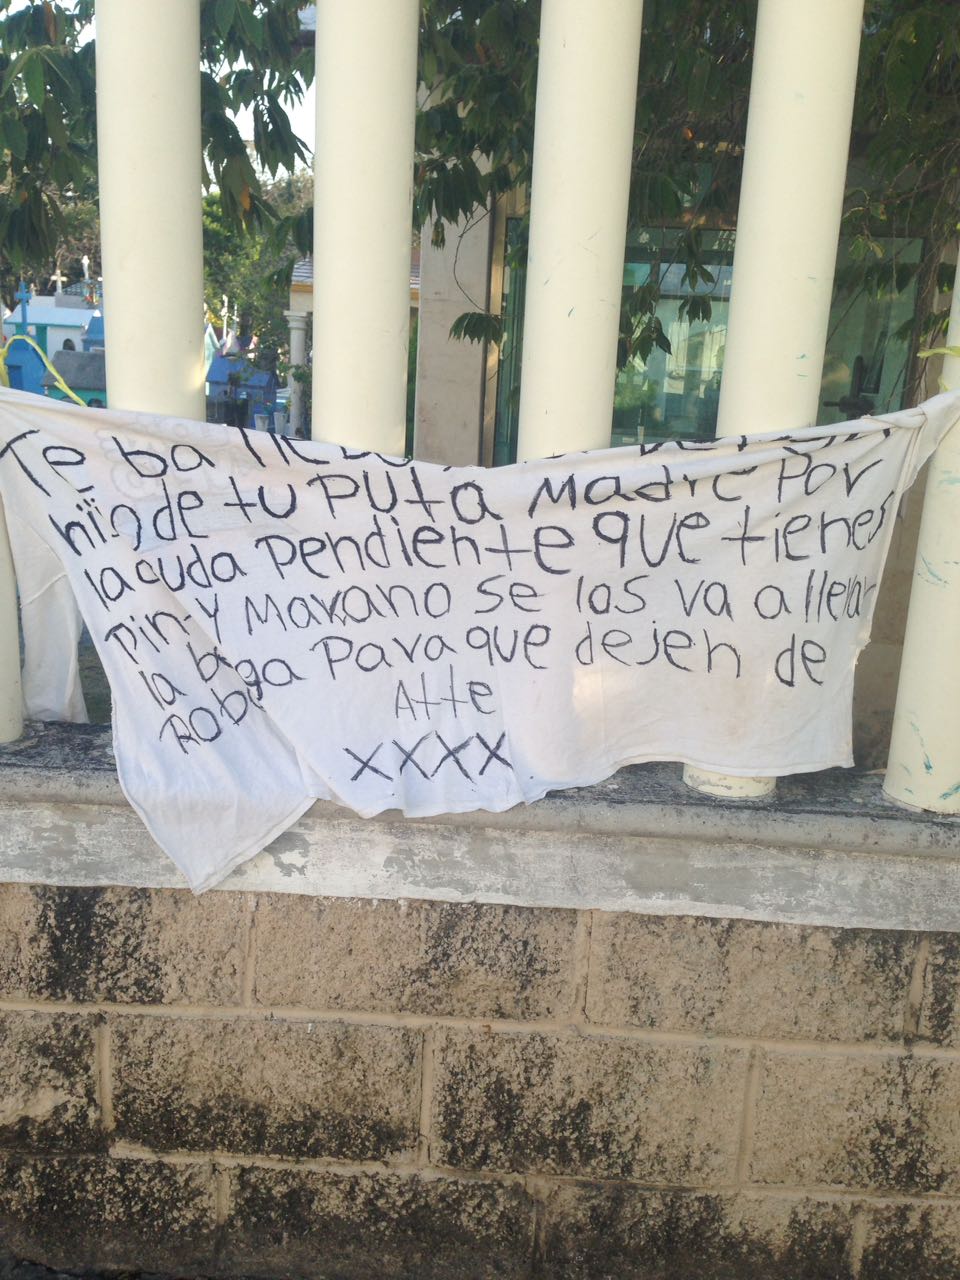 Te ba
de tu PUtA Madre Por
la auda Pendiente que tienes
Pin-y Maxano se los va a llevar
la baga Para que dejen de
RObar
Atte
XXXX